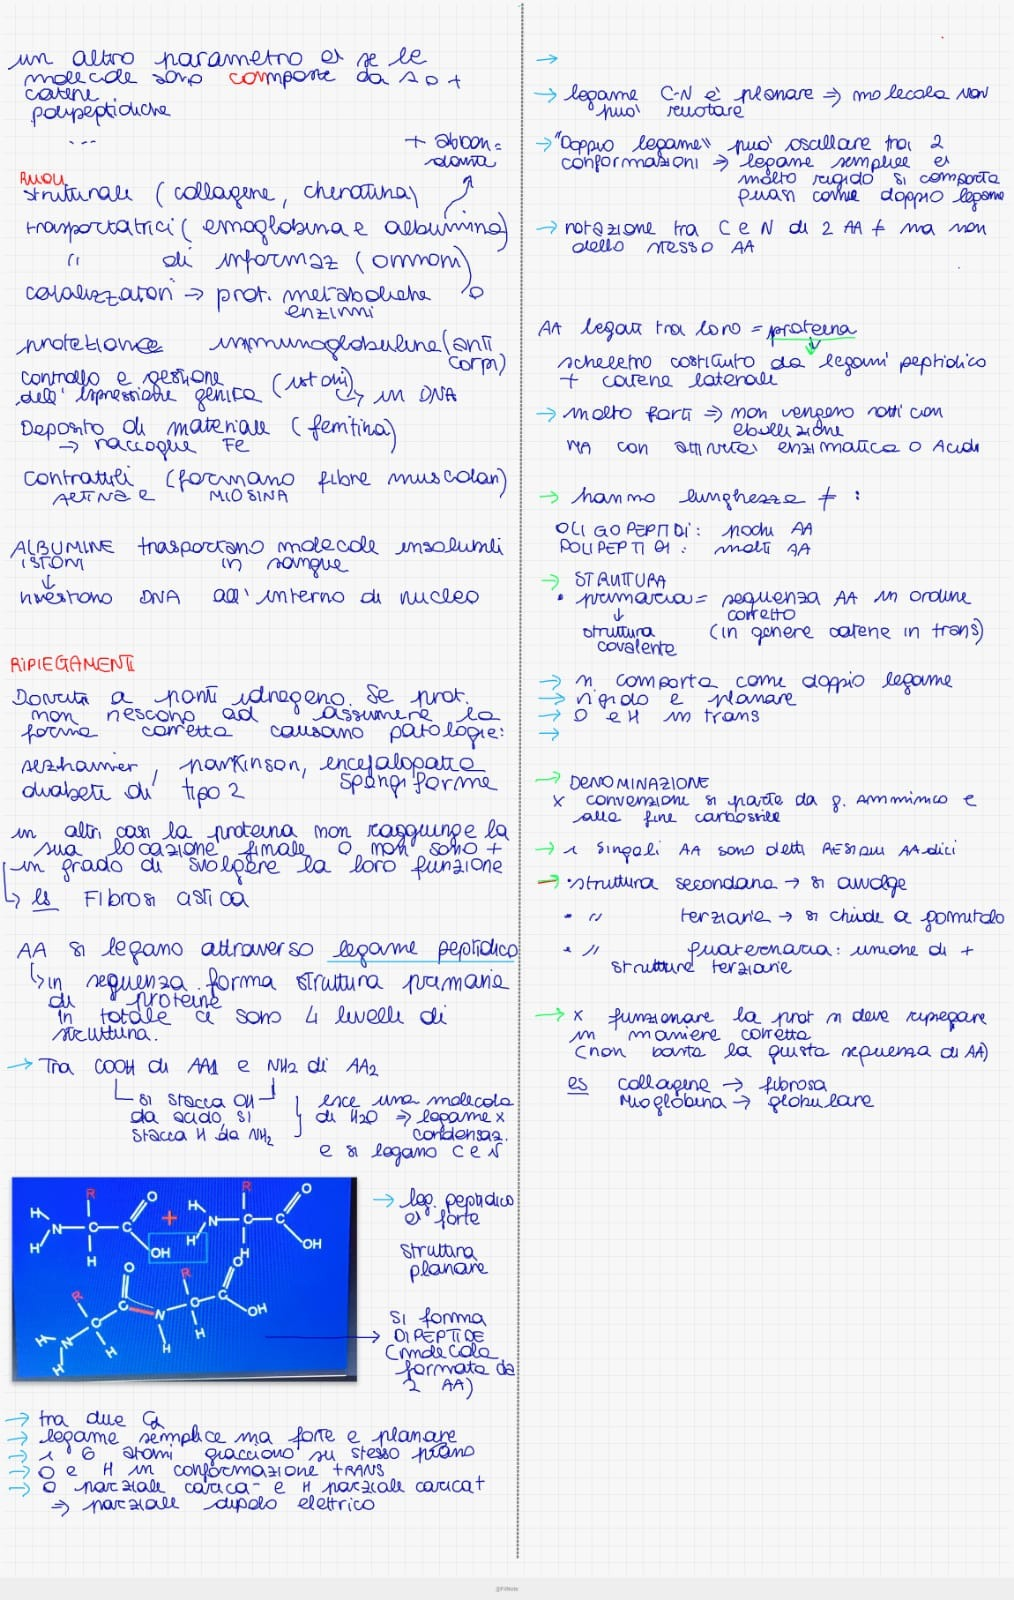 un altro parametro è se le
molecole sono composte da 1 o +
catene
polipeptidiche
...
+ abbon=
danta
RUOLI
strutturale (collagene, cheratina)
trasportatrici (emoglobina e albumina)
" di informaz (ormoni)
catalizzatori → prot. metaboliche
enzimi
protezione immunoglobuline (anti
corpi)
controllo e gestione
dell'espressione genica (istoni)
↳ in DNA
Deposito di materiale (ferritina)
→ raccoglie Fe
Contrattili (formano fibre muscolari)
ACTINA e MIOSINA
ALBUMINE trasportano molecole insolubili
in sangue
ISTONI
↓
rivestono DNA all'interno di nucleo
RIPIEGAMENTI
Dovuti a ponti idrogeno. Se prot.
non riescono ad assumere la
forma corretta causano patologie:
alzhaimer, parkinson, encefalopatia
spongiforme
diabete di tipo 2
in altri casi la proteina non raggiunge la
sua locazione finale o non sono +
in grado di svolgere la loro funzione
↳ es Fibrosi cistica
AA si legano attraverso legame peptidico
↳ in sequenza forma struttura primaria
di proteine
in totale ci sono 4 livelli di
struttura.
→ Tra COOH di AA1 e NH2 di AA2
si stacca OH
da acido, si
stacca H da NH2
esce una molecola
di H2O ⇒ legame x
condensaz.
e si legano C e N
R O R O
H H
N C C + N C C
H H OH H H OH
O R O
R C N C C OH
H N C H H H
H
→ leg. peptidico
è forte
struttura
planare
si forma
DIPEPTIDE
(molecola
formata da
2 AA)
→ tra due Cα
→ legame semplice ma forte e planare
→ i 6 atomi giacciono su stesso piano
→ O e H in conformazione TRANS
→ O parziale carica - e H parziale carica +
⇒ parziale dipolo elettrico
→
→ legame C-N è planare ⇒ molecola NON
può ruotare
→ "Doppio legame" può oscillare tra 2
conformazioni → legame semplice è
molto rigido si comporta
quasi come doppio legame
→ rotazione tra C e N di 2 AA ≠ ma non
dello stesso AA
AA legati tra loro = proteina
↓
scheletro costituito da legami peptidico
+ catene laterale
→ molto forti ⇒ non vengono rotti con
ebollizione
MA con attività enzimatica o Acidi
→ hanno lunghezze ≠ :
OLIGOPEPTIDI: pochi AA
POLIPEPTIDI: molti AA
→ STRUTTURA
• primaria = sequenza AA in ordine
corretto
↓
struttura (in genere catene in trans)
covalente
→ si comporta come doppio legame
→ rigido e planare
→ O e H in trans
→
→ DENOMINAZIONE
x convenzione si parte da g. Amminico e
alla fine carbossile
→ i singoli AA sono detti RESIDUI AAdici
→ • struttura secondaria → si avvolge
• " terziaria → si chiude a gomitolo
• " quaternaria: unione di +
strutture terziarie
→ x funzionare la prot si deve ripiegare
in maniera corretta
(non basta la giusta sequenza di AA)
es collagene → fibrosa
Mioglobina → globulare